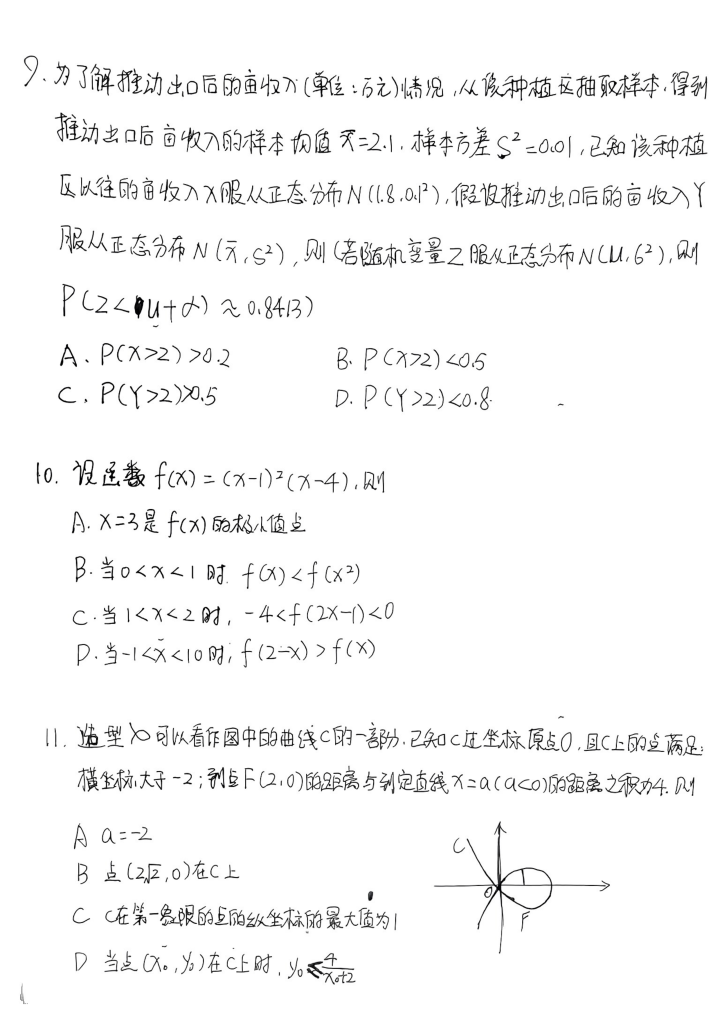 9. 为了解推动出口后的亩收入(单位:万元)情况,从该种植区抽取样本,得到
推动出口后亩收入的样本均值 x̄=2.1, 样本方差 S²=0.01, 已知该种植
区以往的亩收入X服从正态分布N(1.8,0.1²), 假设推动出口后的亩收入Y
服从正态分布N(x̄,S²), 则(若随机变量Z服从正态分布N(u,6²),则
P(Z<u+α)≈0.8413)
A. P(X>2)>0.2 B. P(X>2)<0.5
C. P(Y>2)>0.5 D. P(Y>2)<0.8
10. 设函数 f(x)=(x-1)²(x-4), 则
A. x=3是f(x)的极小值点
B. 当0<x<1时. f(x)<f(x²)
C. 当1<x<2时, -4<f(2x-1)<0
D. 当-1<x<10时, f(2-x)>f(x)
11. 造型∝可以看作图中的曲线C的一部分. 已知C过坐标原点O, 且C上的点满足:
横坐标大于-2; 到点F(2,0)的距离与到定直线x=a(a<0)的距离之积为4. 则
A a=-2
B 点(2√2,0)在C上
C C在第一象限的点的纵坐标的最大值为1
D 当点(x₀,y₀)在C上时, y₀≤4/(x₀+2)
C
O
F